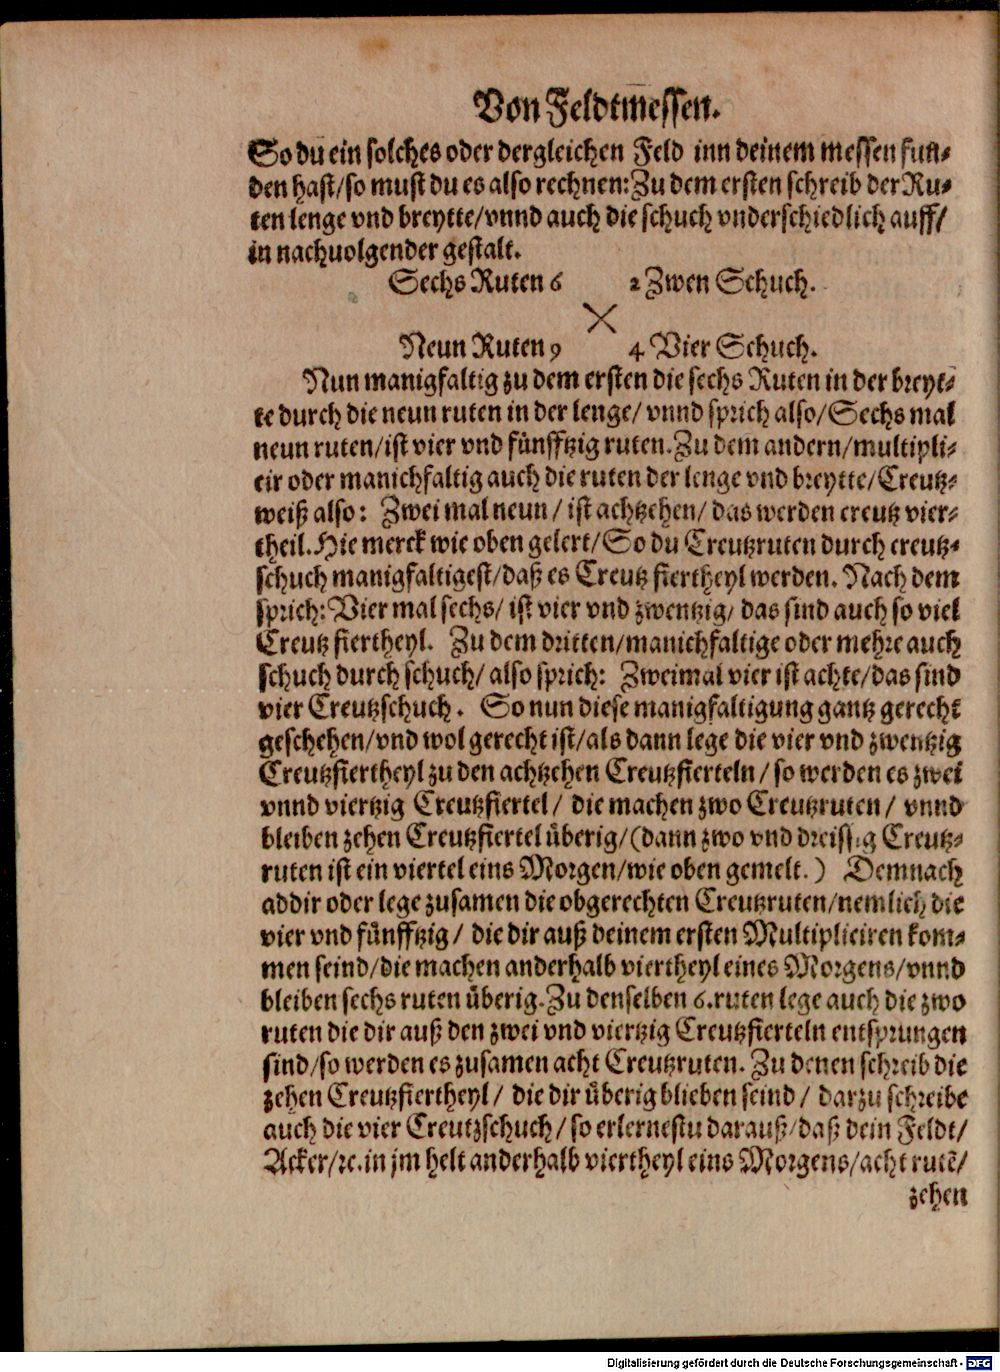 Von Feldtmessen.
So du ein solches oder dergleichen Feld inn deinem messen fun⸗
den hast/so must du es also rechnen:Zu dem ersten schreib der Ru⸗
ten lenge vnd breytte/vnnd auch die schuch vnderschiedlich auff/
in nachuolgender gestalt.
Sechs Ruten 6 2 Zwen Schuch.
Neun Ruten 9 4 Vier Schuch.
Nun manigfaltig zu dem ersten die sechs Ruten in der breyt⸗
te durch die neun ruten in der lenge/ vnnd sprich also/Sechs mal
neun ruten/ist vier vnd fünfftzig ruten.Zu dem andern/multipli⸗
cir oder manichfaltig auch die ruten der lenge vnd breytte/Creutz⸗
weiß also: Zwei mal neun / ist achtzehen/ das werden creutz vier⸗
theil.Hie merck wie oben gelert/So du Creutzruten durch creutz⸗
schuch manigfaltigest/daß es Creutz fiertheyl werden. Nach dem
sprich:Vier mal sechs/ ist vier vnd zwentzig/ das sind auch so viel
Creutz fiertheyl. Zu dem dritten/manichfaltige oder mehre auch
schuch durch schuch/ also sprich: Zweimal vier ist achte/das sind
vier Creutzschuch. So nun diese manigfaltigung gantz gerecht
geschehen/vnd wol gerecht ist/als dann lege die vier vnd zwentzig
Creutzfiertheyl zu den achtzehen Creutzfierteln / so werden es zwei
vnnd viertzig Creutzfiertel / die machen zwo Creutzruten / vnnd
bleiben zehen Creutzfiertel überig/(dann zwo vnd dreissig Creutz⸗
ruten ist ein viertel eins Morgen/wie oben gemelt.) Demnach
addir oder lege zusamen die obgerechten Creutzruten/nemlich die
vier vnd fünfftzig / die dir auß deinem ersten Multipliciren kom⸗
men seind/die machen anderhalb viertheyl eines Morgens/vnnd
bleiben sechs ruten überig.Zu denselben 6.ruten lege auch die zwo
ruten die dir auß den zwei vnd viertzig Creutzfierteln entsprungen
sind/so werden es zusamen acht Creutzruten. Zu denen schreib die
zehen Creutzfiertheyl / die dir überig blieben seind / darzu schreibe
auch die vier Creutzschuch / so erlernestu darauß/daß dein Feldt/
Acker/ꝛc.in jm helt anderhalb viertheyl eins Morgens/acht rutẽ/
zehen
Digitalisierung gefördert durch die Deutsche Forschungsgemeinschaft - DFG